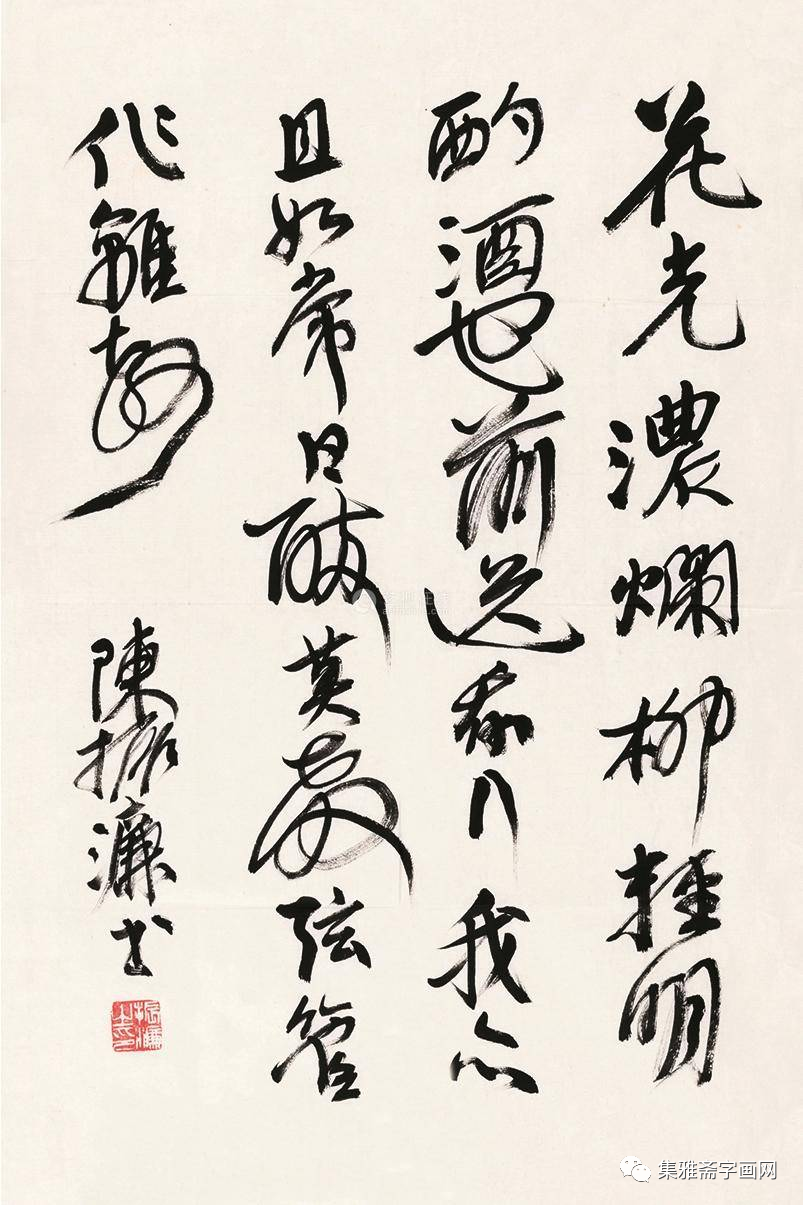 花光濃爛柳輕明
酌酒花前送我行我亦
且如常日醉莫教弦管
作離聲
陳振濂书
集雅斋字画网